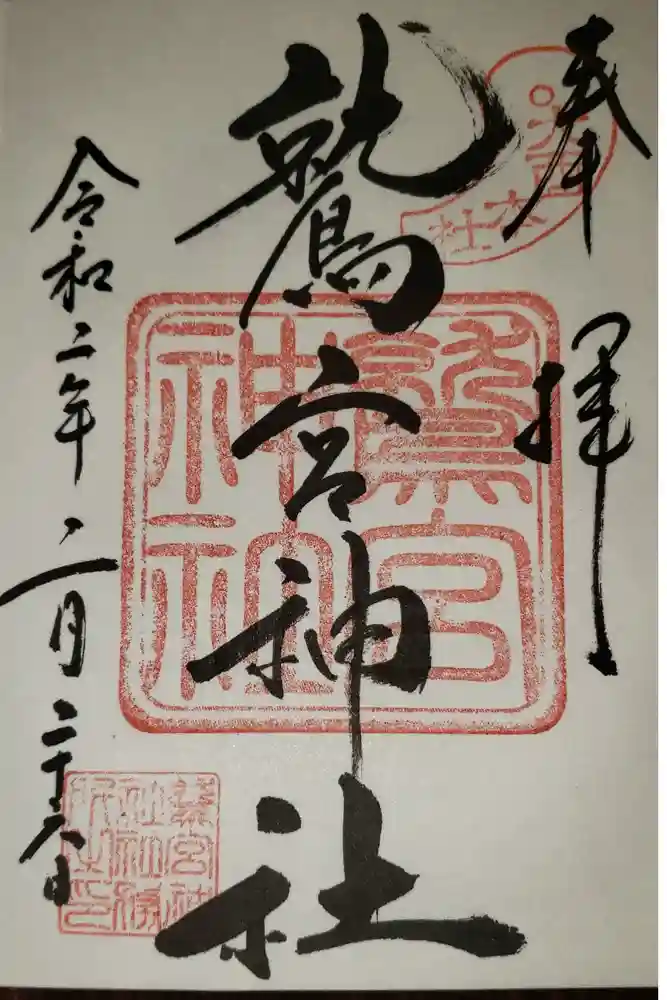 奉拝
鷲宮神社
鷲宮神社
令和二年二月二十六日
鷲宮神社社務所之印